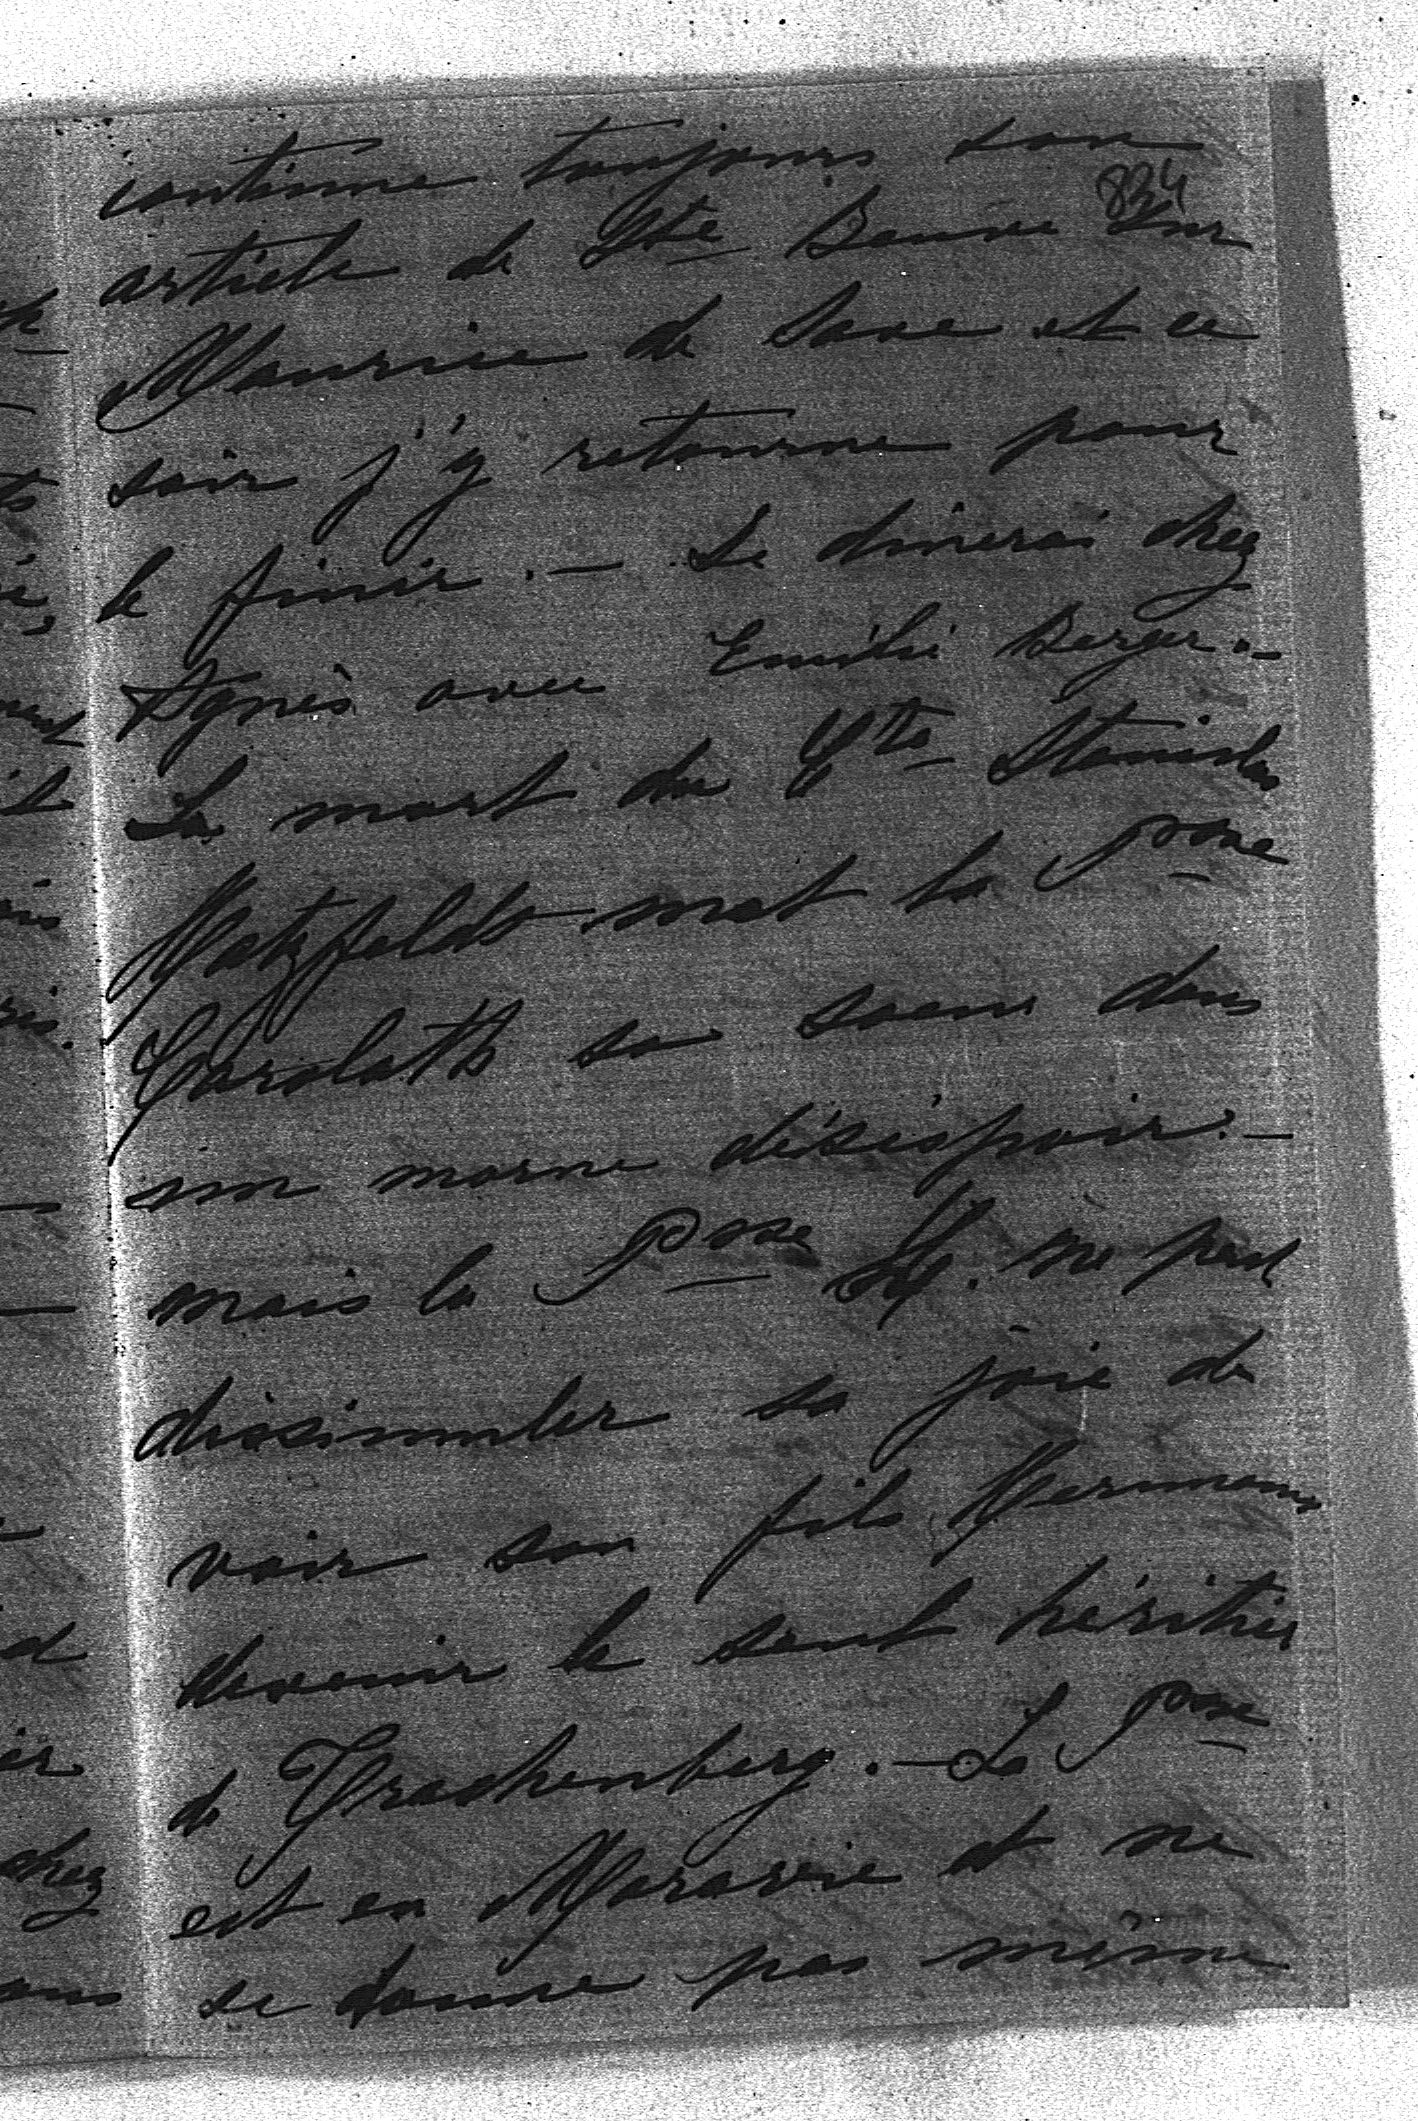 834
continue toujours son
article de Ste Beuve sur
Maurice de Saxe et ce
soir j'y retourne pour
le finir. — Je dinerai chez
Agnès avec Emilie Berger. —
La mort du Cte Stanislas
Hatzfeldt met la Psse
Carolath sa soeur dans
un morne désespoir. —
mais la Psse ne peut
dissimuler sa joie de
voir son fils Hermann
devenir le seul héritier
de Trachenberg. — La Psse
est en Moravie et ne
se donne pas même